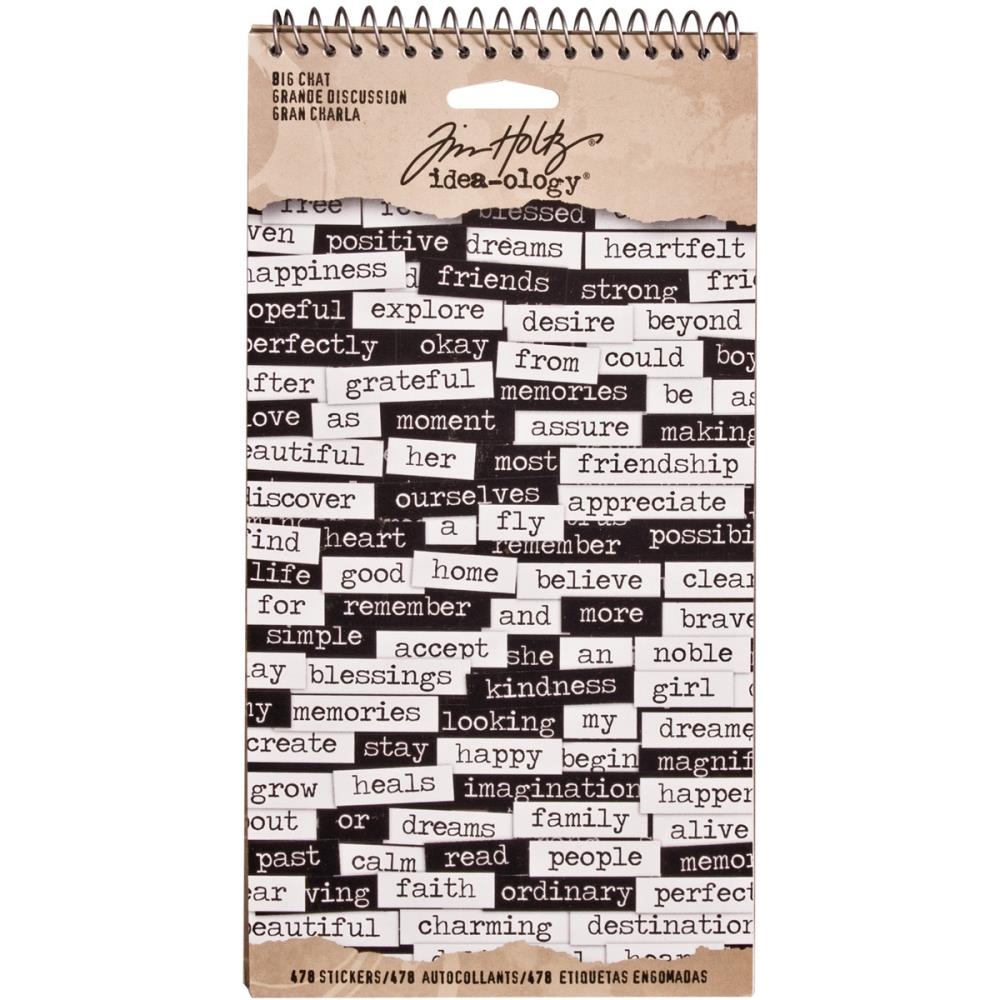 BIG CHAT
GRANDE DISCUSSION
GRAN CHARLA
Tim Holtz®
idea-ology®
free blessed
ven positive dreams heartfelt
appiness d friends strong frie
opeful explore desire beyond
perfectly okay from could boy
after grateful memories be as
love as moment assure making
eautiful her most friendship
discover ourselves appreciate
a fly
find heart remember possibi
life good home believe clear
for remember and more brave
simple accept she an noble
ay blessings kindness girl
my memories looking my dreame
create stay happy begin magnif
grow heals imagination happen
out or dreams family alive
past calm read people memor
ear ving faith ordinary perfect
beautiful charming destination
478 STICKERS/478 AUTOCOLLANTS/478 ETIQUETAS ENGOMADAS